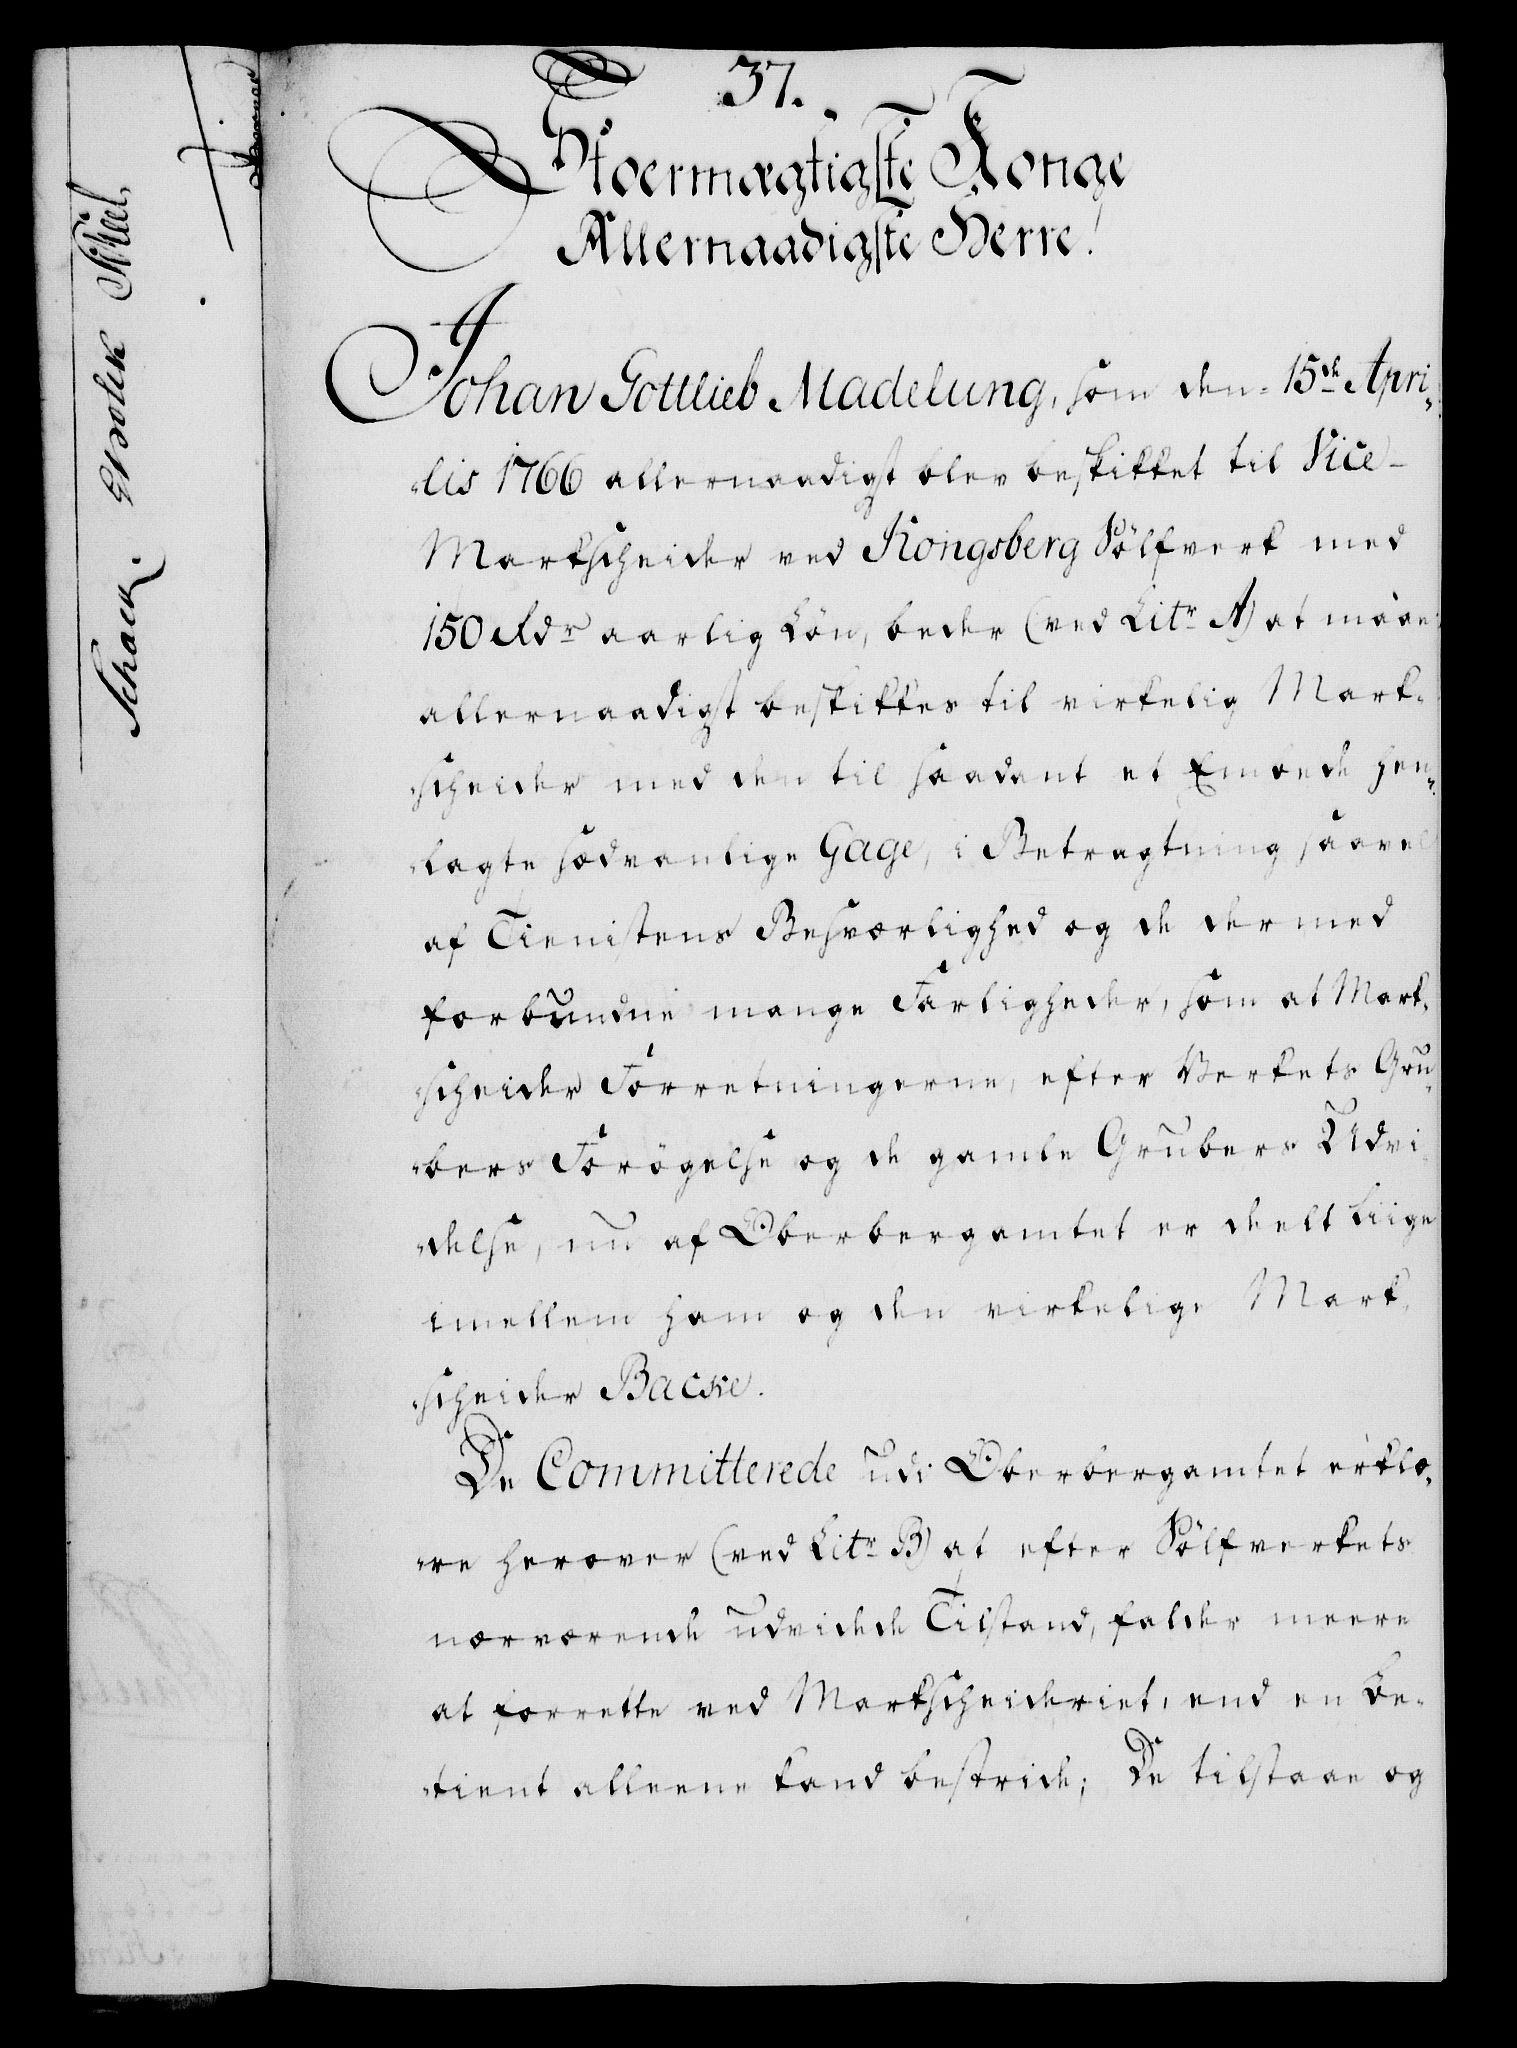 37.
Stoermægtigste Konge
Allernaadigste Herre!
Johan Gottlieb Madelung, som den 15de Apri„
„lis 1766 allernaadigst blev beskikket til Vice-
Markscheider ved Kongsberg Sölfverk med
150 Rdr aarlig Lön, beder (ved Litr A) at maae
allernaadigst beskikkes til virkelig Mark„
„scheider med den til saadant et Embede hen„
„lagte sædvanlige Gage, i Betragtning saavel
af Tienistens Besværlighed og de dermed
forbundne mange Farligheder, som at Mark„
„scheider Forretningerne, efter Verkets Gru„
„bers Forögelse og de gamle Grubers Udvi„
„delse, nu af Oberbergamtet er deelt liige
imellem ham og den virkelige Mark„
„scheider Backe.
De Committerede udi Oberbergamtet erklæ„
„re herover (ved Litr B) at efter Sölfverkets
nærværende udvidede Tilstand, falder meere
at forrette ved Markscheideriet, end en Be„
„tient alleene kand bestride; De tilstaae og
Schack.
Skeel